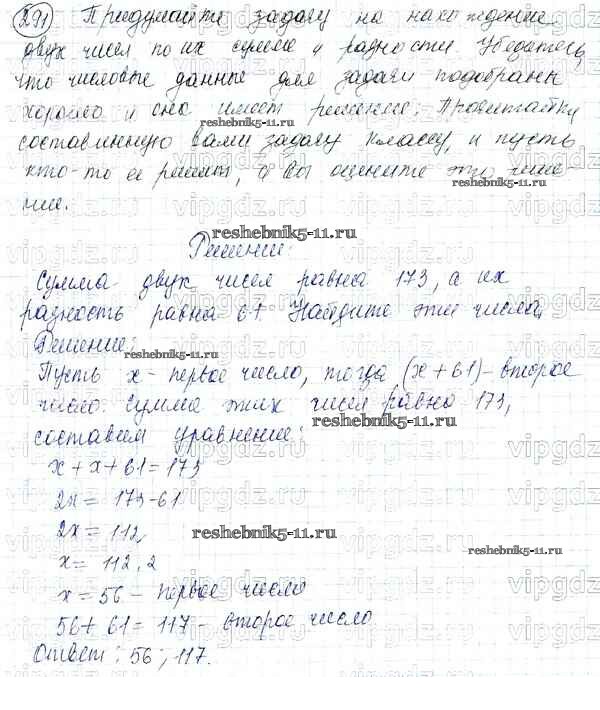 291 Придумайте задачу на нахождение
двух чисел по их сумме и разности. Убедитесь,
что числовые данные для задачи подобраны
хорошо и она имеет решение. Прочитайте
reshebnik5-11.ru
составленную вами задачу классу, и пусть
кто-то её решит, а вы оцените это реше-
ние.
reshebnik5-11.ru
Решение:
Сумма двух чисел равна 173, а их
разность равна 61. Найдите эти числа.
Решение:
reshebnik5-11.ru
Пусть x - первое число, тогда (x + 61) - второе
число. Сумма этих чисел равна 173,
reshebnik5-11.ru
составим уравнение:
x + x + 61 = 173
2x = 173-61
2x = 112
reshebnik5-11.ru
x = 112:2
reshebnik5-11.ru
x = 56 - первое число
56 + 61 = 117 - второе число
Ответ: 56; 117.